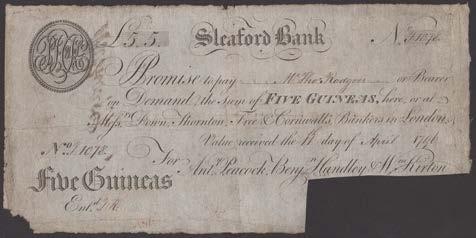 £5.5. Sleaford Bank No.
I Promise to pay Mr. Thos. Rodgers or Bearer
on Demand, the Sum of FIVE GUINEAS, here, or at
Messrs. Down, Thornton, Free & Cornwalls, Bankers in London.
Value received the day of April 1796
No. 1078 For Anty. Peacock, Benjn. Handley & Wm. Kirton
Five Guineas
Entd.